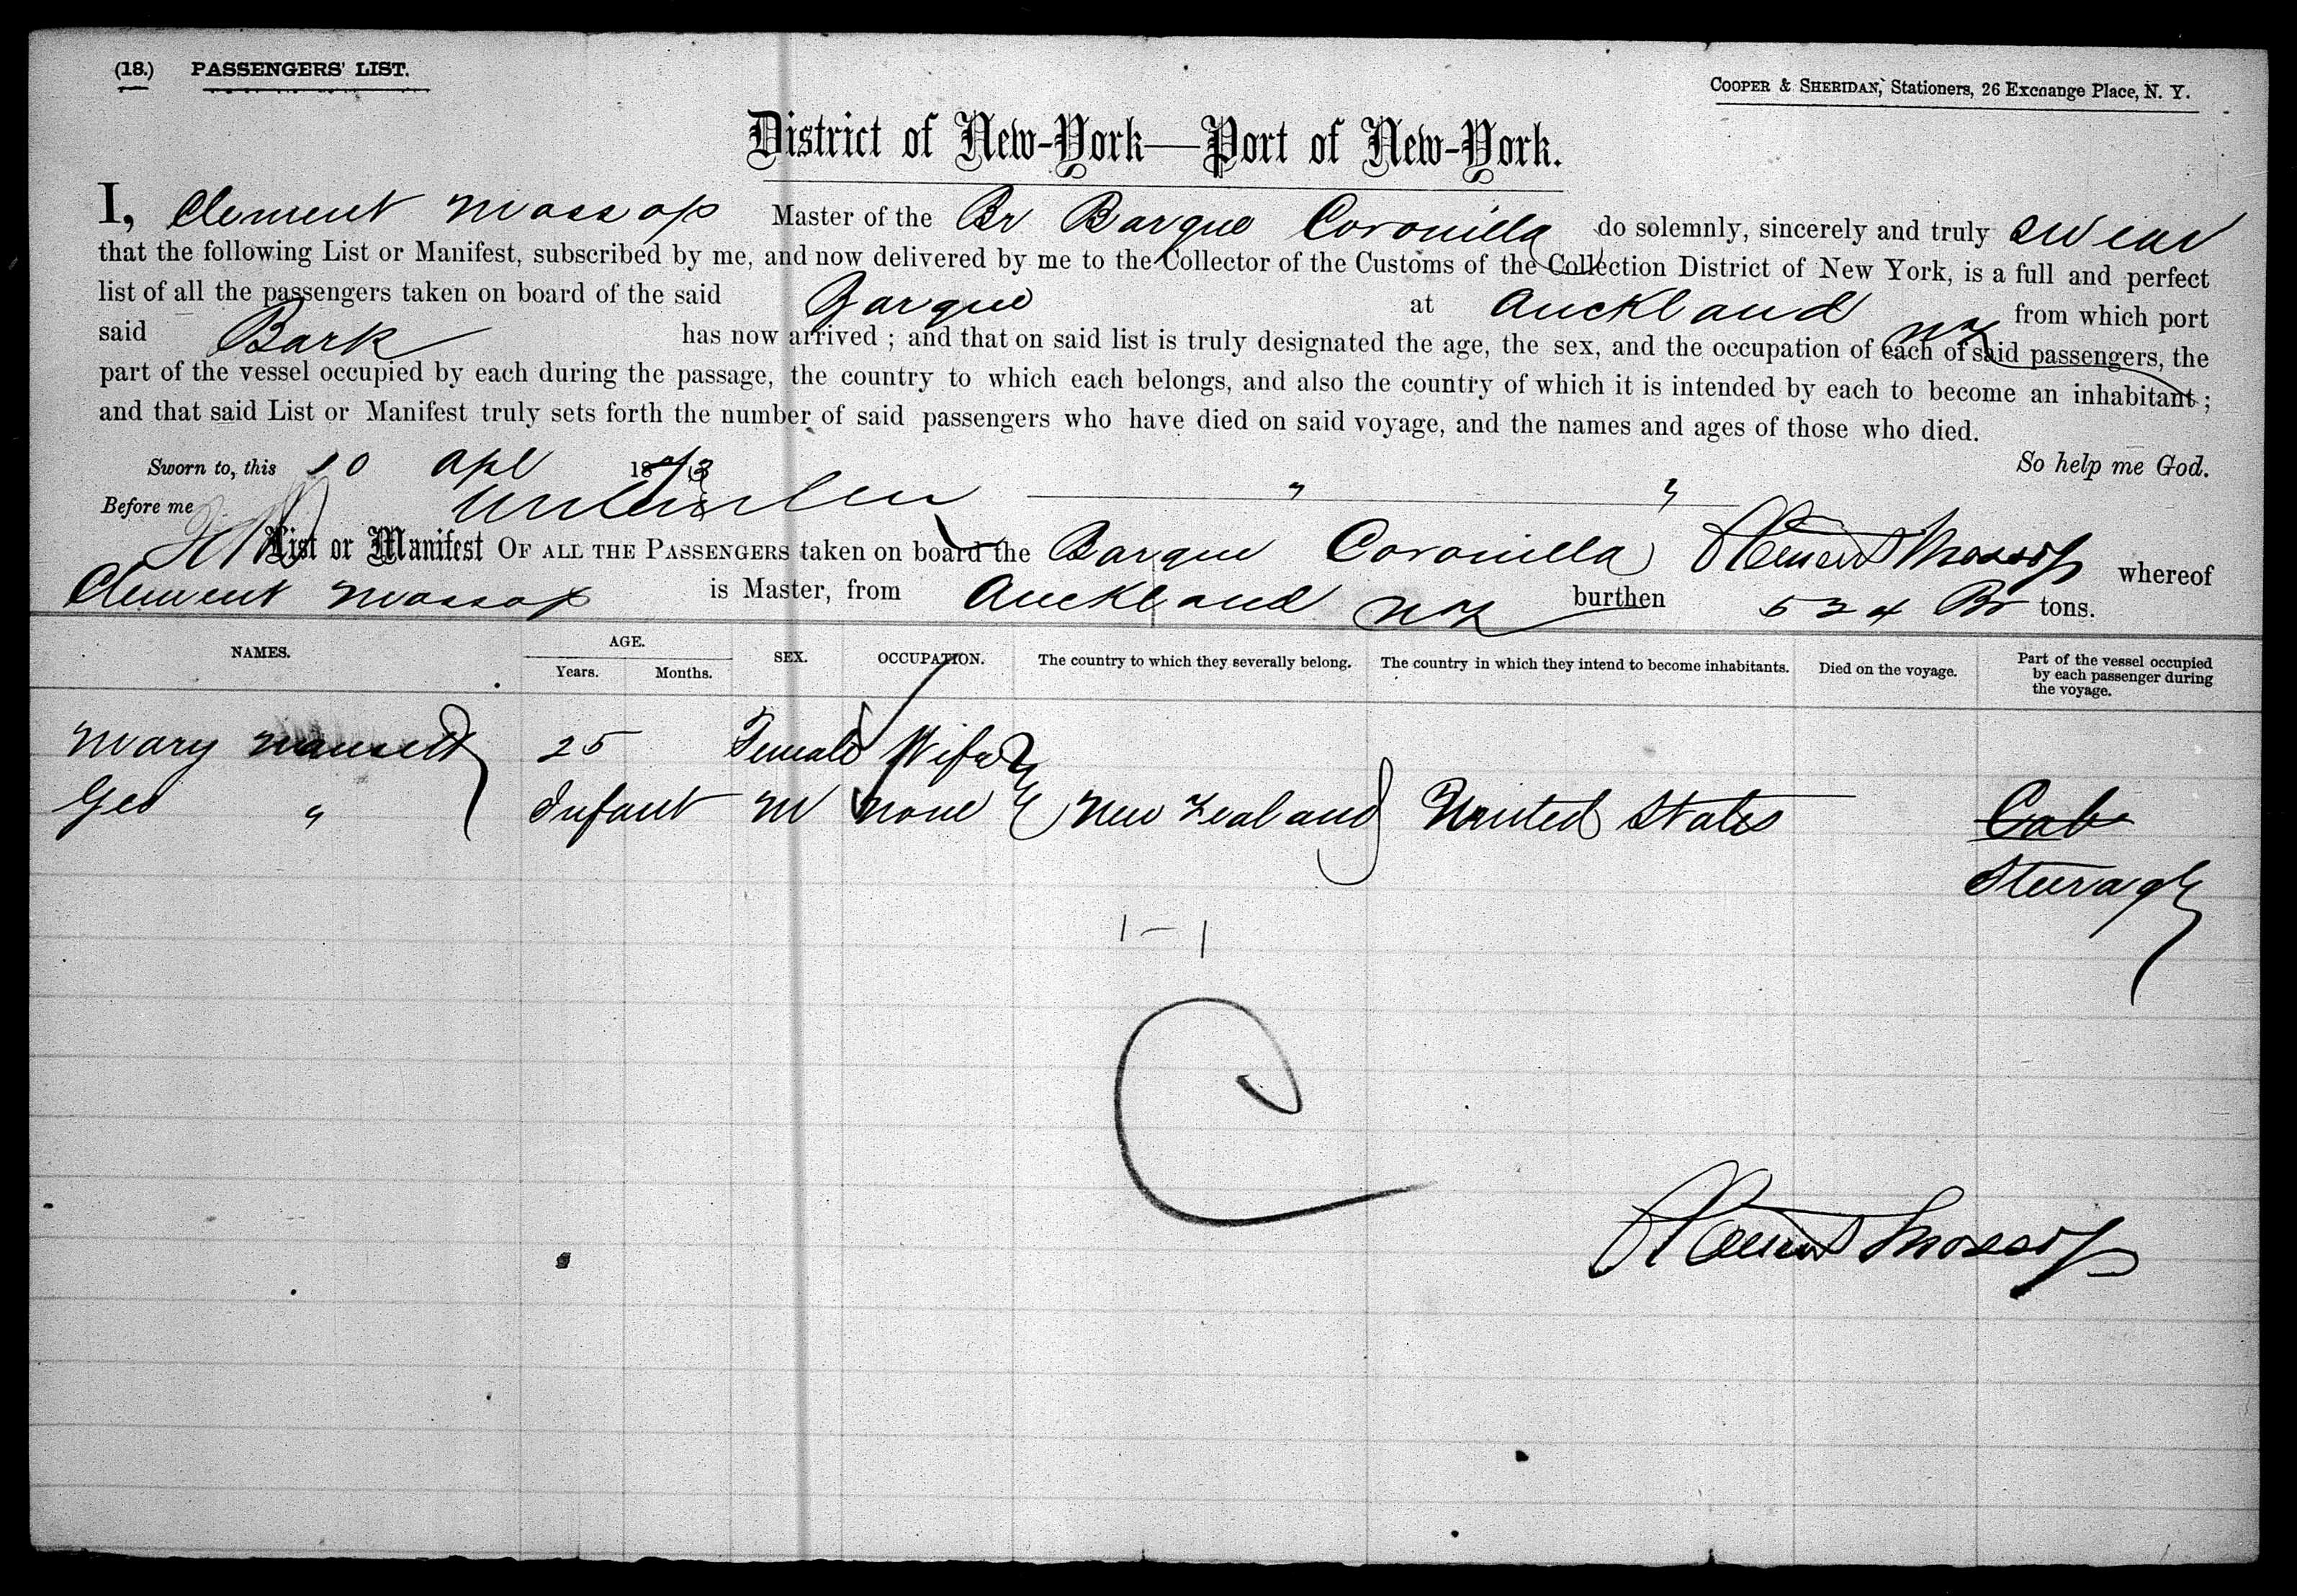 (18.) PASSENGERS' LIST.
COOPER & SHERIDAN, Stationers, 26 Excnange Place, N. Y.
District of New-York—Port of New-York.
I, Clement Mossop Master of the Br Barque Coronilla do solemnly, sincerely and truly swear
that the following List or Manifest, subscribed by me, and now delivered by me to the Collector of the Customs of the Collection District of New York, is a full and perfect
list of all the passengers taken on board of the said Barque at Auckland NZ from which port
said Bark has now arrived ; and that on said list is truly designated the age, the sex, and the occupation of each of said passengers, the
part of the vessel occupied by each during the passage, the country to which each belongs, and also the country of which it is intended by each to become an inhabitant ;
and that said List or Manifest truly sets forth the number of said passengers who have died on said voyage, and the names and ages of those who died.
Sworn to, this 10 Apl 1873 So help me God.
Before me
List or Manifest OF ALL THE PASSENGERS taken on board the Barque Coronilla Clement Mossop whereof
Clement Mossop is Master, from Auckland NZ burthen 524 Br tons.
NAMES. AGE. SEX. OCCUPATION. The country to which they severally belong. The country in which they intend to become inhabitants. Died on the voyage. Part of the vessel occupied by each passenger during the voyage.
Years. Months.
Mary 25 Female Wife
Geo " Infant M None New Zealand United States Cab
Steerage
1 - 1
C
Clement Mossop